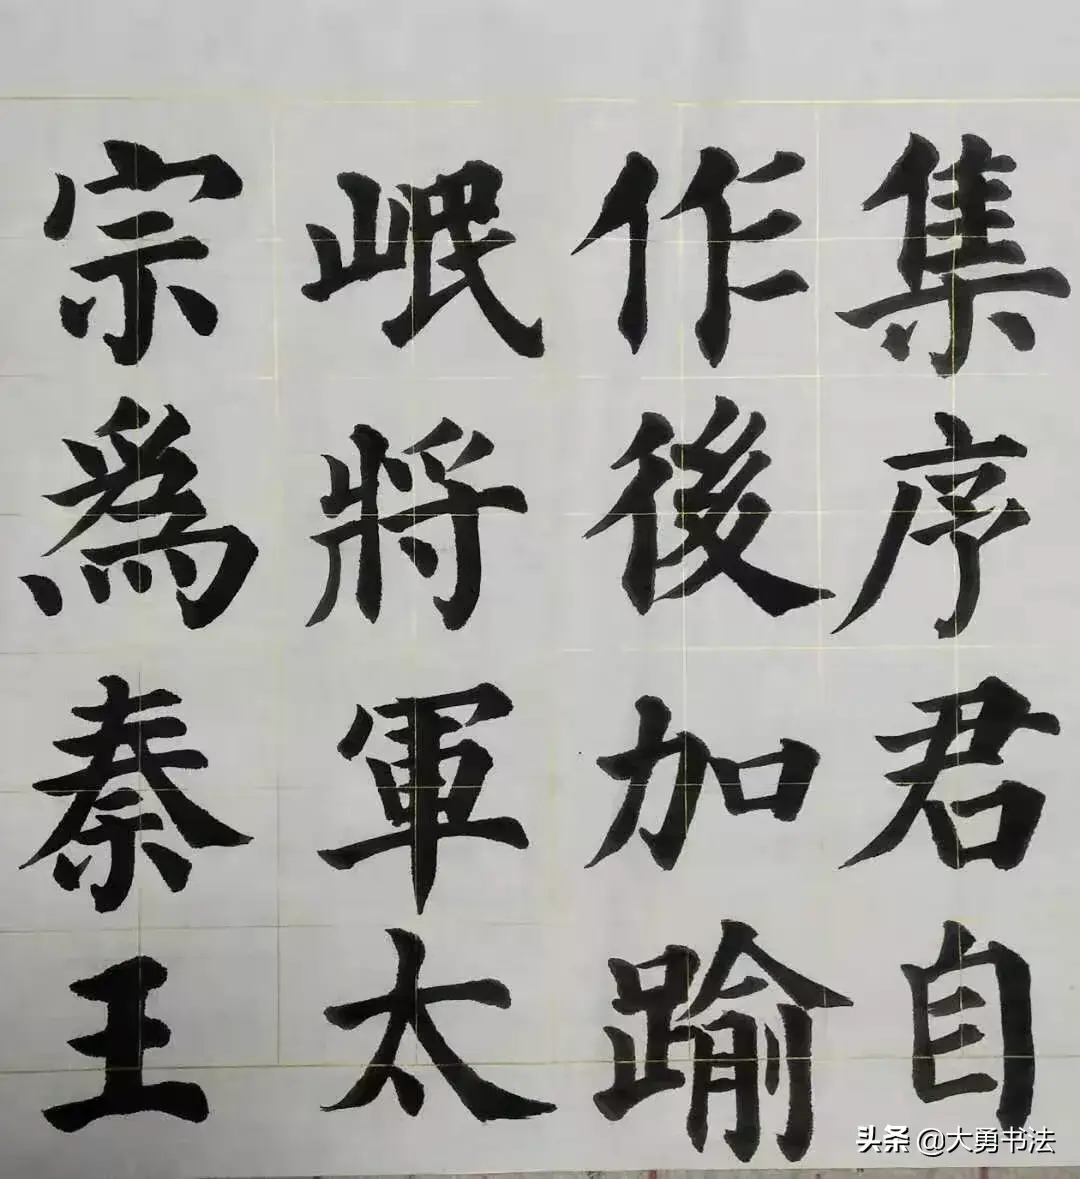 集序君自
作後加踰
岷將軍太
宗為秦王
头条 @大勇书法